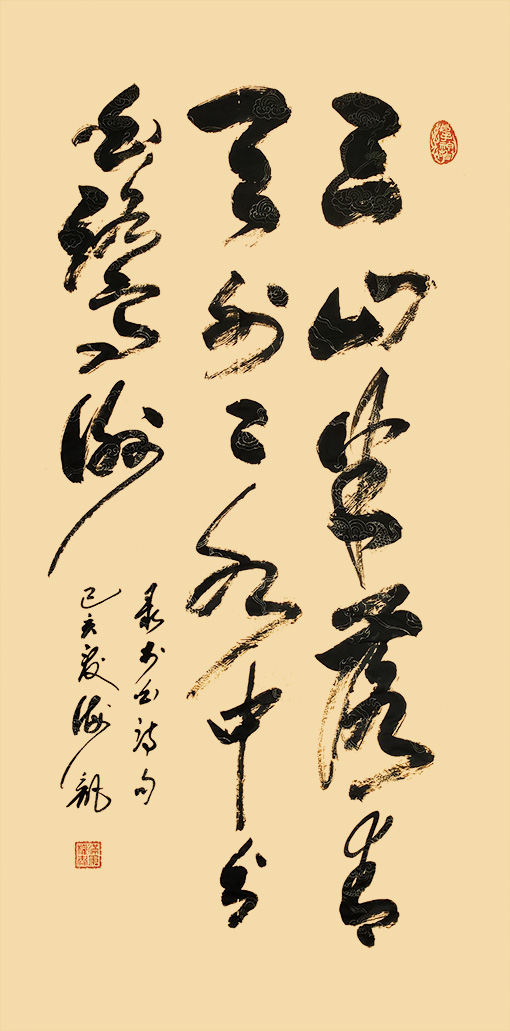 三山半落青
天外二水中分
白鹭洲
录李白诗句
己亥夏海龙